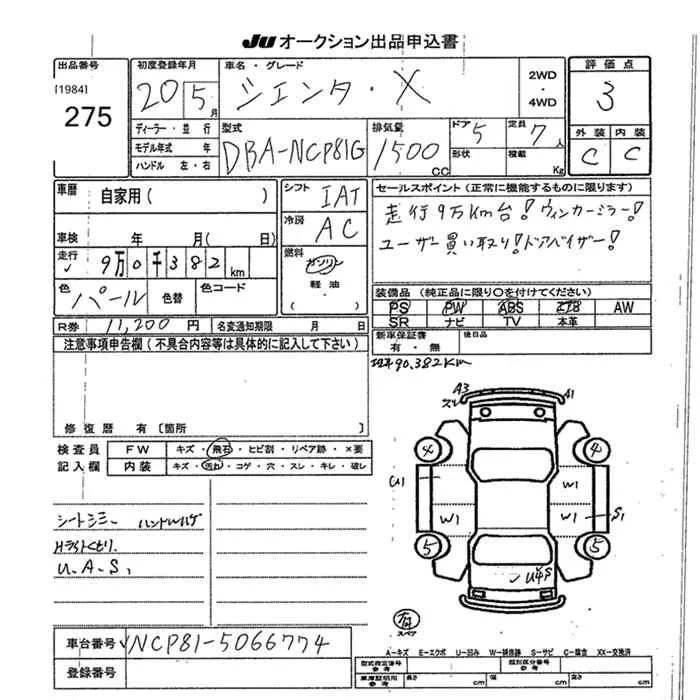 JU オークション出品申込書
出品番号 初度登録年月 車名・グレード 2WD・4WD 評価点
[1984] 275 20 5月 シエンタ・X 3
ディーラー・並行 型式 排気量 ドア 5 定員 7人 外装 内装
モデル年式 年 DBA-NCP81G 1500CC 形状 積載 Kg C C
ハンドル 左・右
車歴 自家用( ) シフト IAT セールスポイント(正常に機能するものに限ります)
冷房 AC 走行9万Km台! ウィンカーミラー!
車検 年 月( 日) ユーザー買い取り! ドアバイザー!
走行 9万0千382km 燃料 ガソリン・軽油・( )
色 パール 色替 色コード 装備品(純正品に限り○を付けてください)
PS PW ABS エアB AW
SR ナビ TV 本革
R券 11,200円 名変通知期限 月 日 新車保証書 有・無 後日品
注意事項申告欄(不具合内容等は具体的に記入して下さい)
90,382Km
修復歴 有〔箇所 〕
検査員記入欄 FW キズ・飛石・ヒビ割・リペア跡・×要
内装 キズ・汚れ・コゲ・穴・スレ・キレ・破レ
A3 A1
4 4
U1 W1
W1 W1 S1
5 5
シートシミー ハンドルハゲ
Hライトくもり.
U.A.S,
スペア
車台番号 NCP81-5066774
登録番号
A−キズ E−エクボ U−凹み W−補修跡 S−サビ C−腐食 XX−交換済
型式指定番号 参考 類別区分番号 参考
車庫証明用 参考 長さ cm cm cm